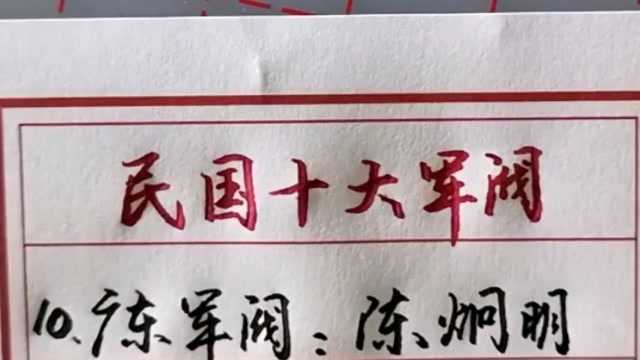 民国十大军阀
10、广东军阀：陈炯明